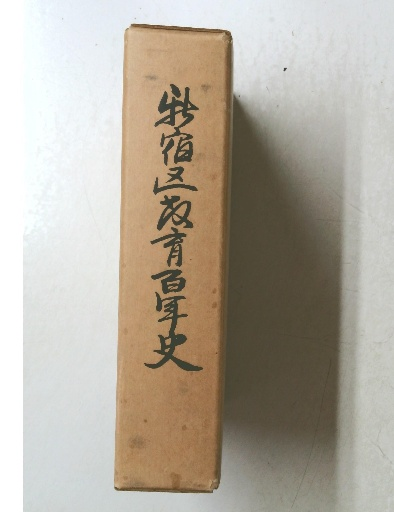 新宿区教育百年史